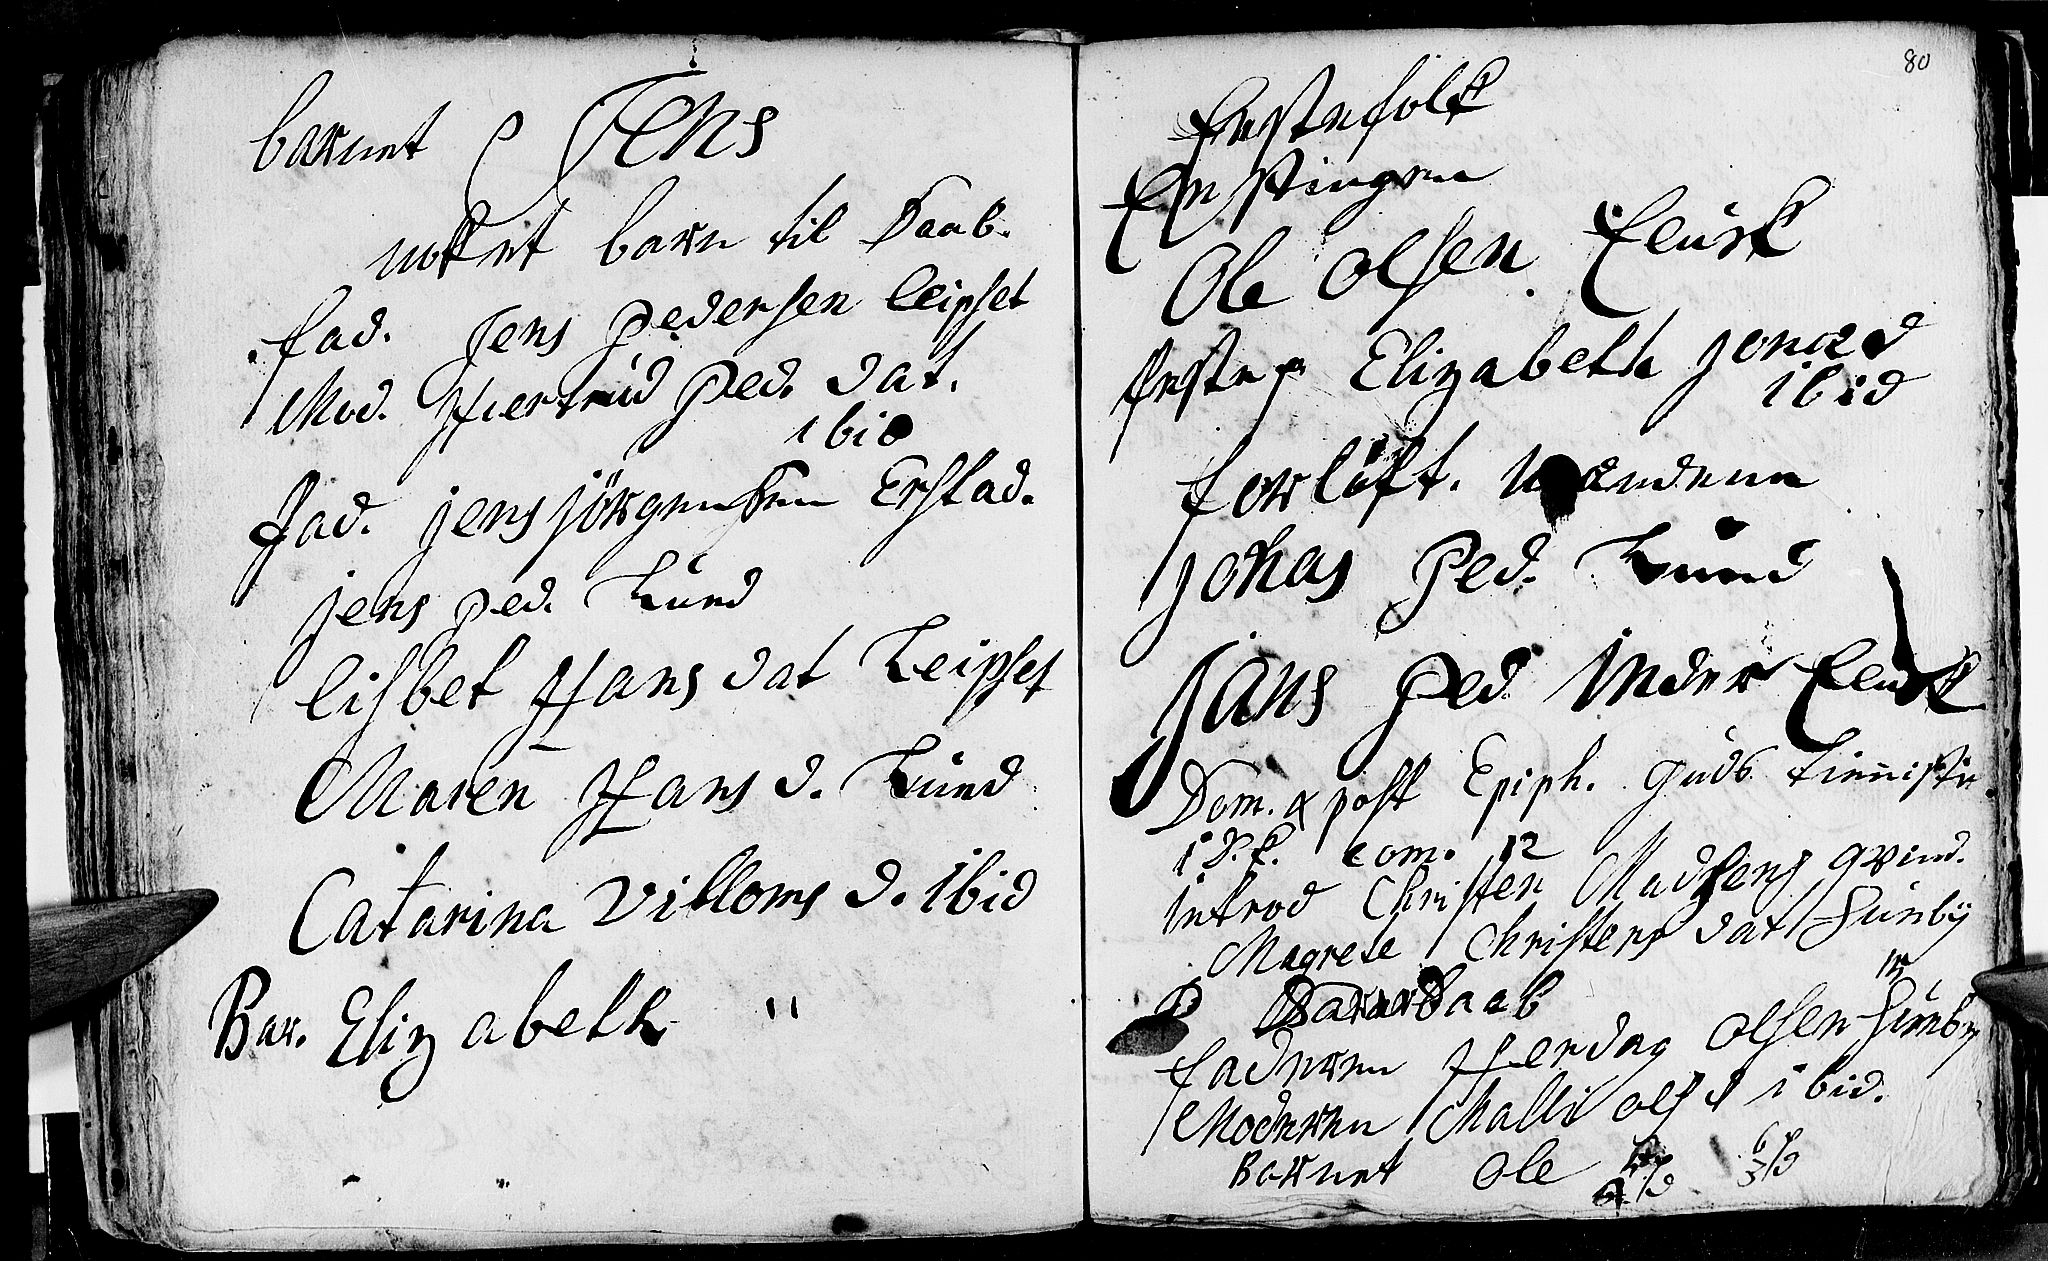 barnet Jens
nok et barn til Daab.
fad. Jens Pedersen Leipset
Mod. Hiertrud Ped. dat.
ibid
fad. Jens Jörgensen Erstad.
Jens Ped. Lund
Lisbet Hans dat Leipset
Maren Hans d. Lund
Catarina Villoms d. ibid
Bar. Elizabeth
80
festefolk
Ole Olsen Flusk
feste p. Elizabeth Jonæ d
ibid
forlöft. mændene
Jonas Ped. Lund
Jans Ped. Inder Flusk
Dom. 4 post Epiph. Guds Tieniste
i com. 12
Introd Christen Madsens qvind.
Magrete Christens dat Sünby
Barne Daab
faderen Hierdag Olsen Sünby
Moderen Malli Ols d ibid.
Barnet Ole